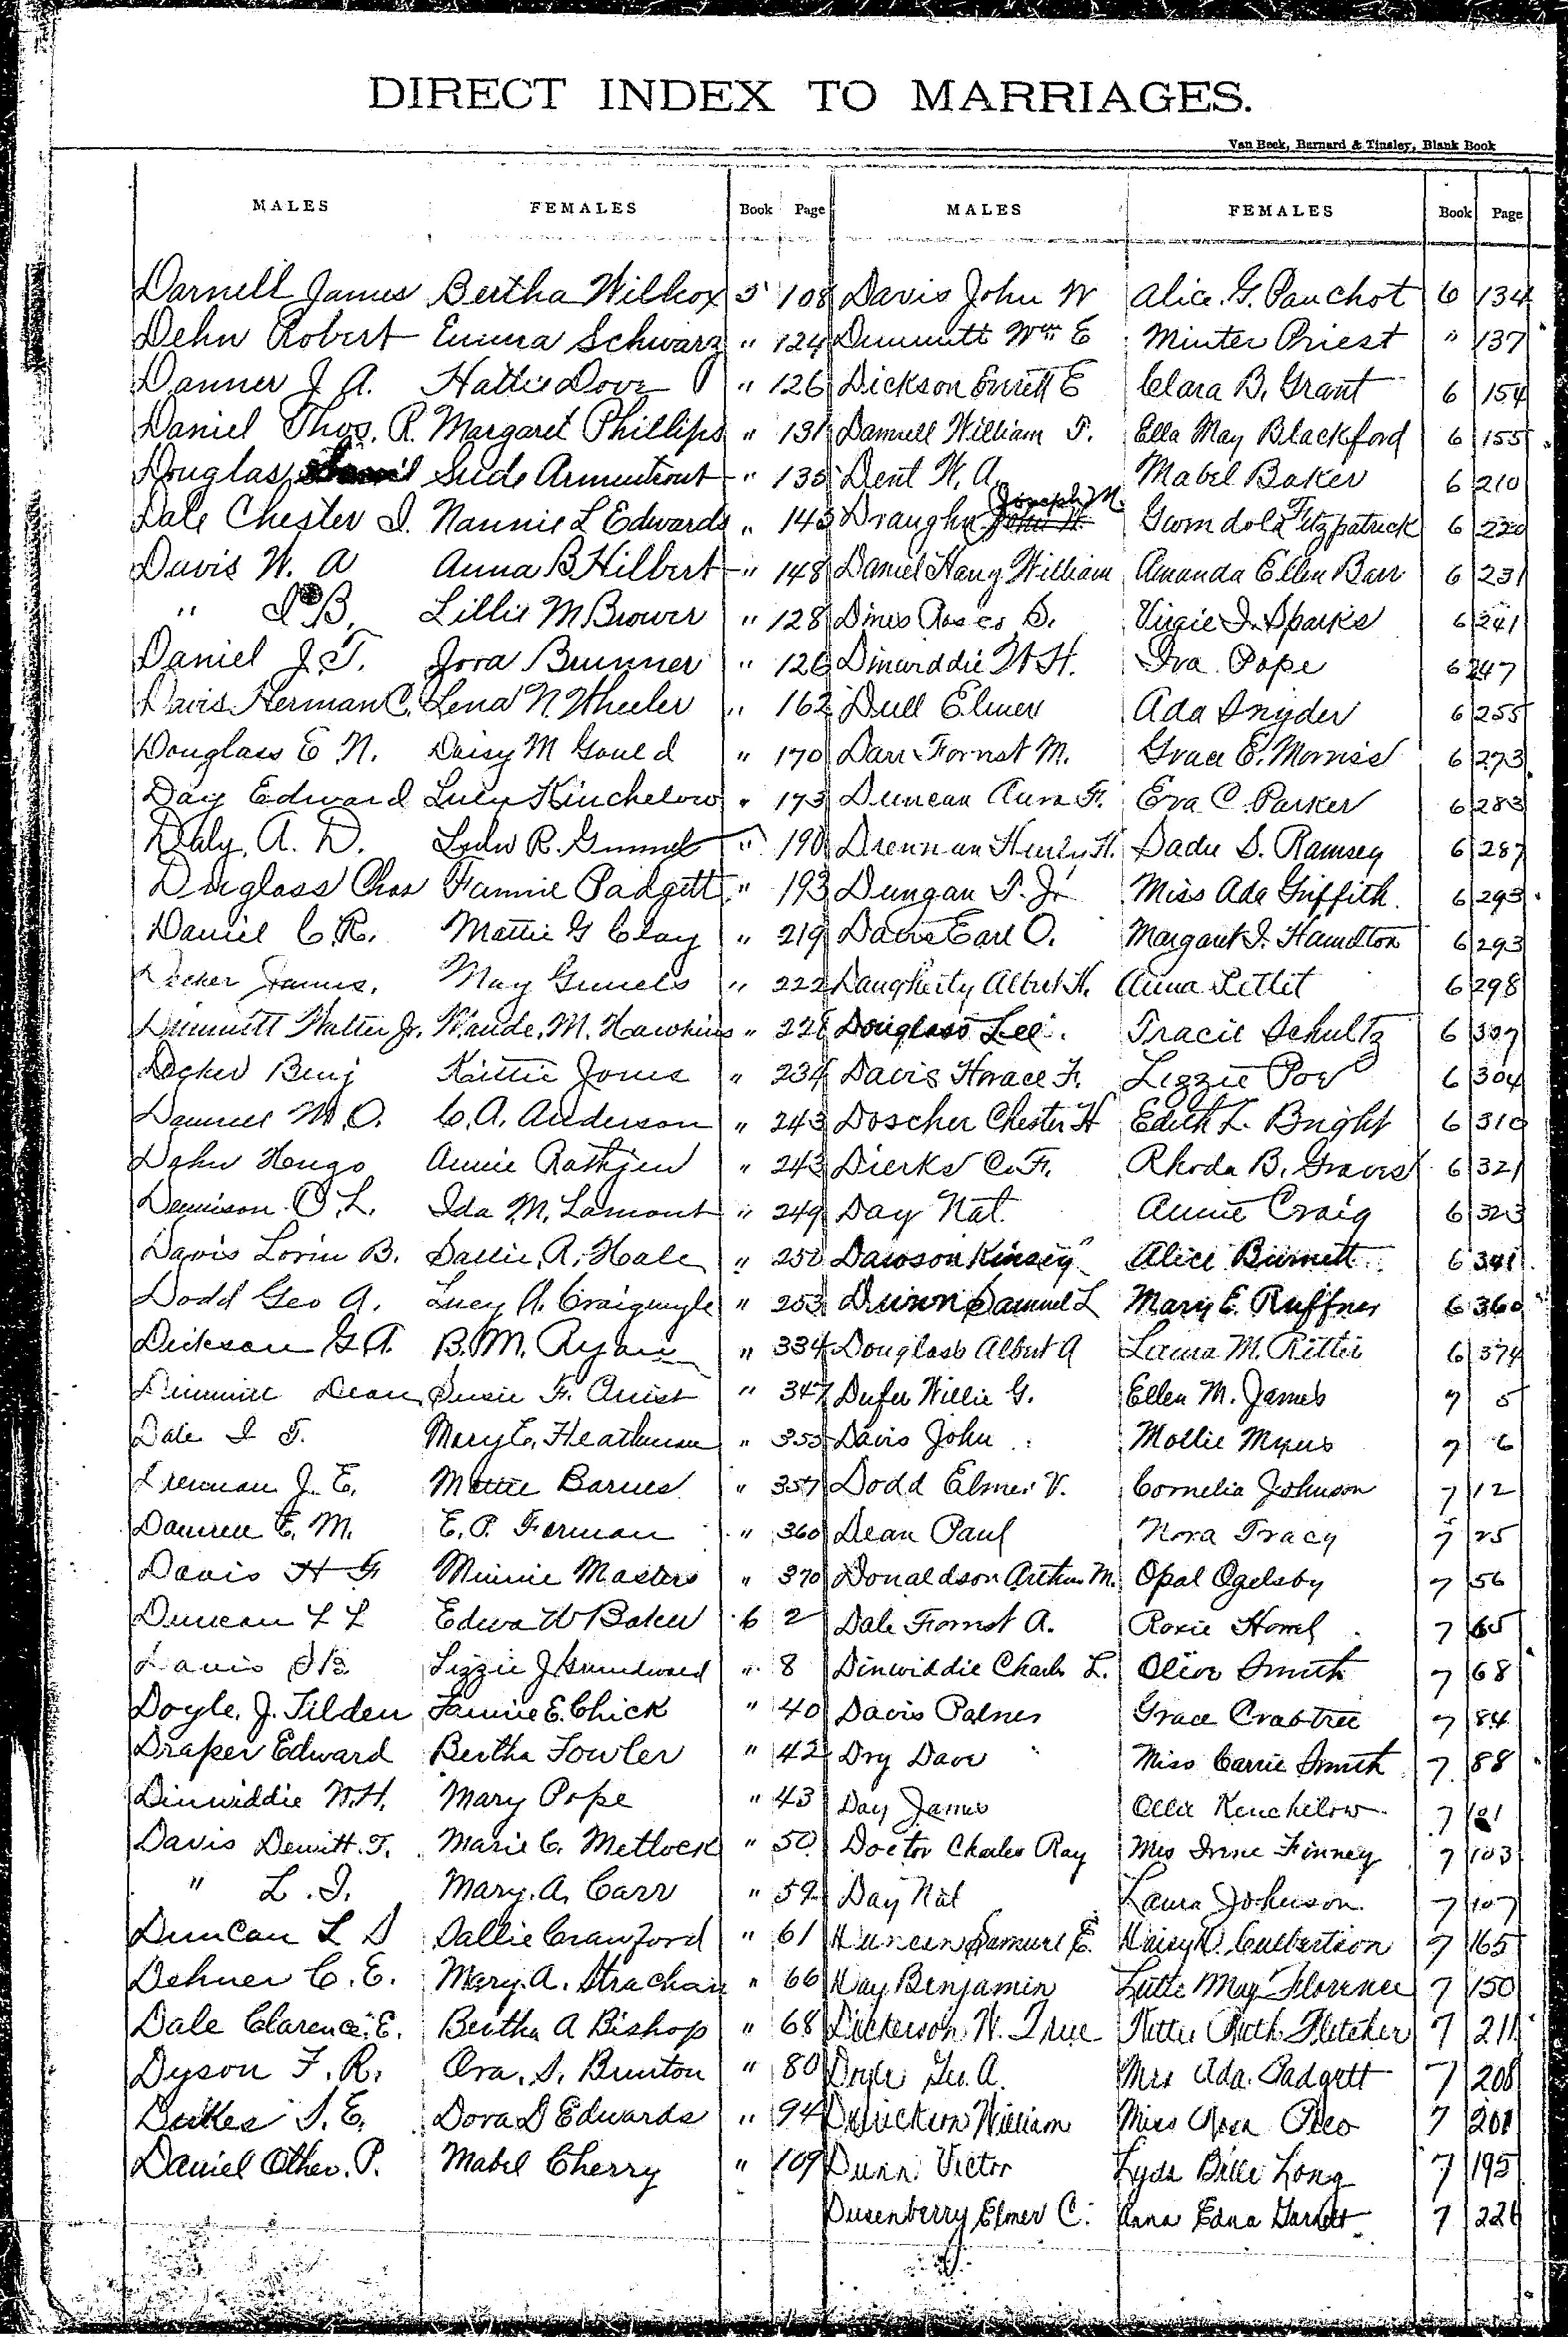 DIRECT INDEX TO MARRIAGES.
Van Beek, Barnard & Tinsley, Blank Book
MALES FEMALES Book Page MALES FEMALES Book Page
Darnell James Bertha Wilhox 5 108 Davis John W Alice. G. Panchot 6 134
Dehn Robert Emma Schwarz " 124 Dimmitt Wm E Minter Priest " 137
Danner J A. Hattie Dove " 126 Dickson Everett E Clara B. Grant 6 154
Daniel Thos. R. Margaret Phillips " 131 Damrell William T. Ella May Blackford 6 155
Douglas Sude Armentrout " 135 Dent W. A. Mabel Baker 6 210
Dale Chester I. Nannie L Edwards " 145 Draughn Joseph M. Gwendola Fitzpatrick 6 220
Davis W. A Anna B Hilbert " 148 Daniel Harry William Amanda Ellen Barr 6 231
" B. Lillie M Brower " 128 Dines Rosco D. Virgie I. Sparks 6 241
Daniel J. T. Jora Brunner " 126 Dinwiddie W H. Iva Pope 6 247
Davis Herman C. Lena N. Wheeler " 162 Dull Elmer Ada Snyder 6 255
Douglass E N. Daisy M Gould " 170 Darr Forrest M. Grace E. Morriss 6 273
Day Edward Lucy Kinchelow " 173 Duncan Aura F. Eva C. Parker 6 283
Daly, A. D. R. " 190 Drennan H. Sadie S. Ramsey 6 287
Douglass Chas Fannie Padgett " 193 Dungan T. Jr Miss Ada Griffith 6 293
Daniel C. R. Mattie G Clay " 219 Davis Earl O. Margaret I. Hamilton 6 293
Decker James. May Gunels " 222 Daugherty Albert H. Anna Lettet 6 298
Dimmitt Walter Jr. Maude. M. Hawkins " Douglass Lee Tracie Schultz 6 307
Decker Benj Kittie Jones " 234 Davis Horace F. Lizzie Poe 6 304
Damrell M. O. C. A. Anderson " 243 Doscher Chester H Edith L. Bright 6 310
Dahn Hugo Annie Rathjen " 243 Dierks C. F. Rhoda B. Graves 6 321
Dennison O. L. Ida M. Lamont " 249 Day Nat. Annie Craig 6 323
Davis Lorin B. Sallie. A. Hale " 250 Dawson Kinsey Alice Burnett 6 341
Dodd Geo A. Lucy A. Craigmyle " 253 Dunn Samuel L Mary E. Ruffner 6 360
Dickson G. A. B. M. Ryan " 334 Douglass Albert A Laura M. Rittie 6 374
Dean Susie F. Crist " 347 Dufer Willie G. Ellen M. James 7 5
Dale I T. Mary E. Heathman " 355 Davis John Mollie Myers 7 6
Drennan J. E. Mattie Barnes " 357 Dodd Elmer V. Cornelia Johnson 7 12
Damrell E. M. E. P. Forman " 360 Dean Paul Nora Tracy 7 25
Davis H G Minnie Masters " 370 Donaldson Arthur M. Opal Ogelsby 7 56
Duncan L L Edwa W Baker 6 2 Dale Forrest A. Roxie Howel 7 65
Davis Lizzie J " 8 Dinwiddie Charles L. Olive Smith 7 68
Doyle. J. Tilden Fannie E. Chick " 40 Davis Palner Grace Crabtree 7 84
Draper Edward Bertha Fowler " 42 Dry Dave Miss Carrie Smith 7 88
Dinwiddie W. H. Mary Pope " 43 Day James Ollie Kenchelow 7
Davis Dewitt. T. Marie C. Metlock " 50 Doctor Charles Ray Mrs Irene Finney 7 103
" L. I. Mary. A. Carr " 59 Day Nat Laura Johnson 7 107
Duncan L D Sallie Crawford " 61 Duncan Samuel E. Daisy D. Culbertson 7 165
Dehner C. E. Mary. A. Strachan " 66 Day Benjamin May Florence 7 150
Dale Clarence. E. Bertha A Bishop " 68 Dickerson W. True Ruth Fletcher 7 211
Dyson F. R. Ora. S. Bruton " 80 Doyle Geo. A. Mrs Ada. Padgett 7 208
Dukes S. E. Dora D Edwards " 94 William Miss 7 201
Daniel Other. P. Mabel Cherry " 109 Dunn Victor Lyda Belle Long 7 195
Dusenberry Elmer C. Anna Edna Garnett 7 226